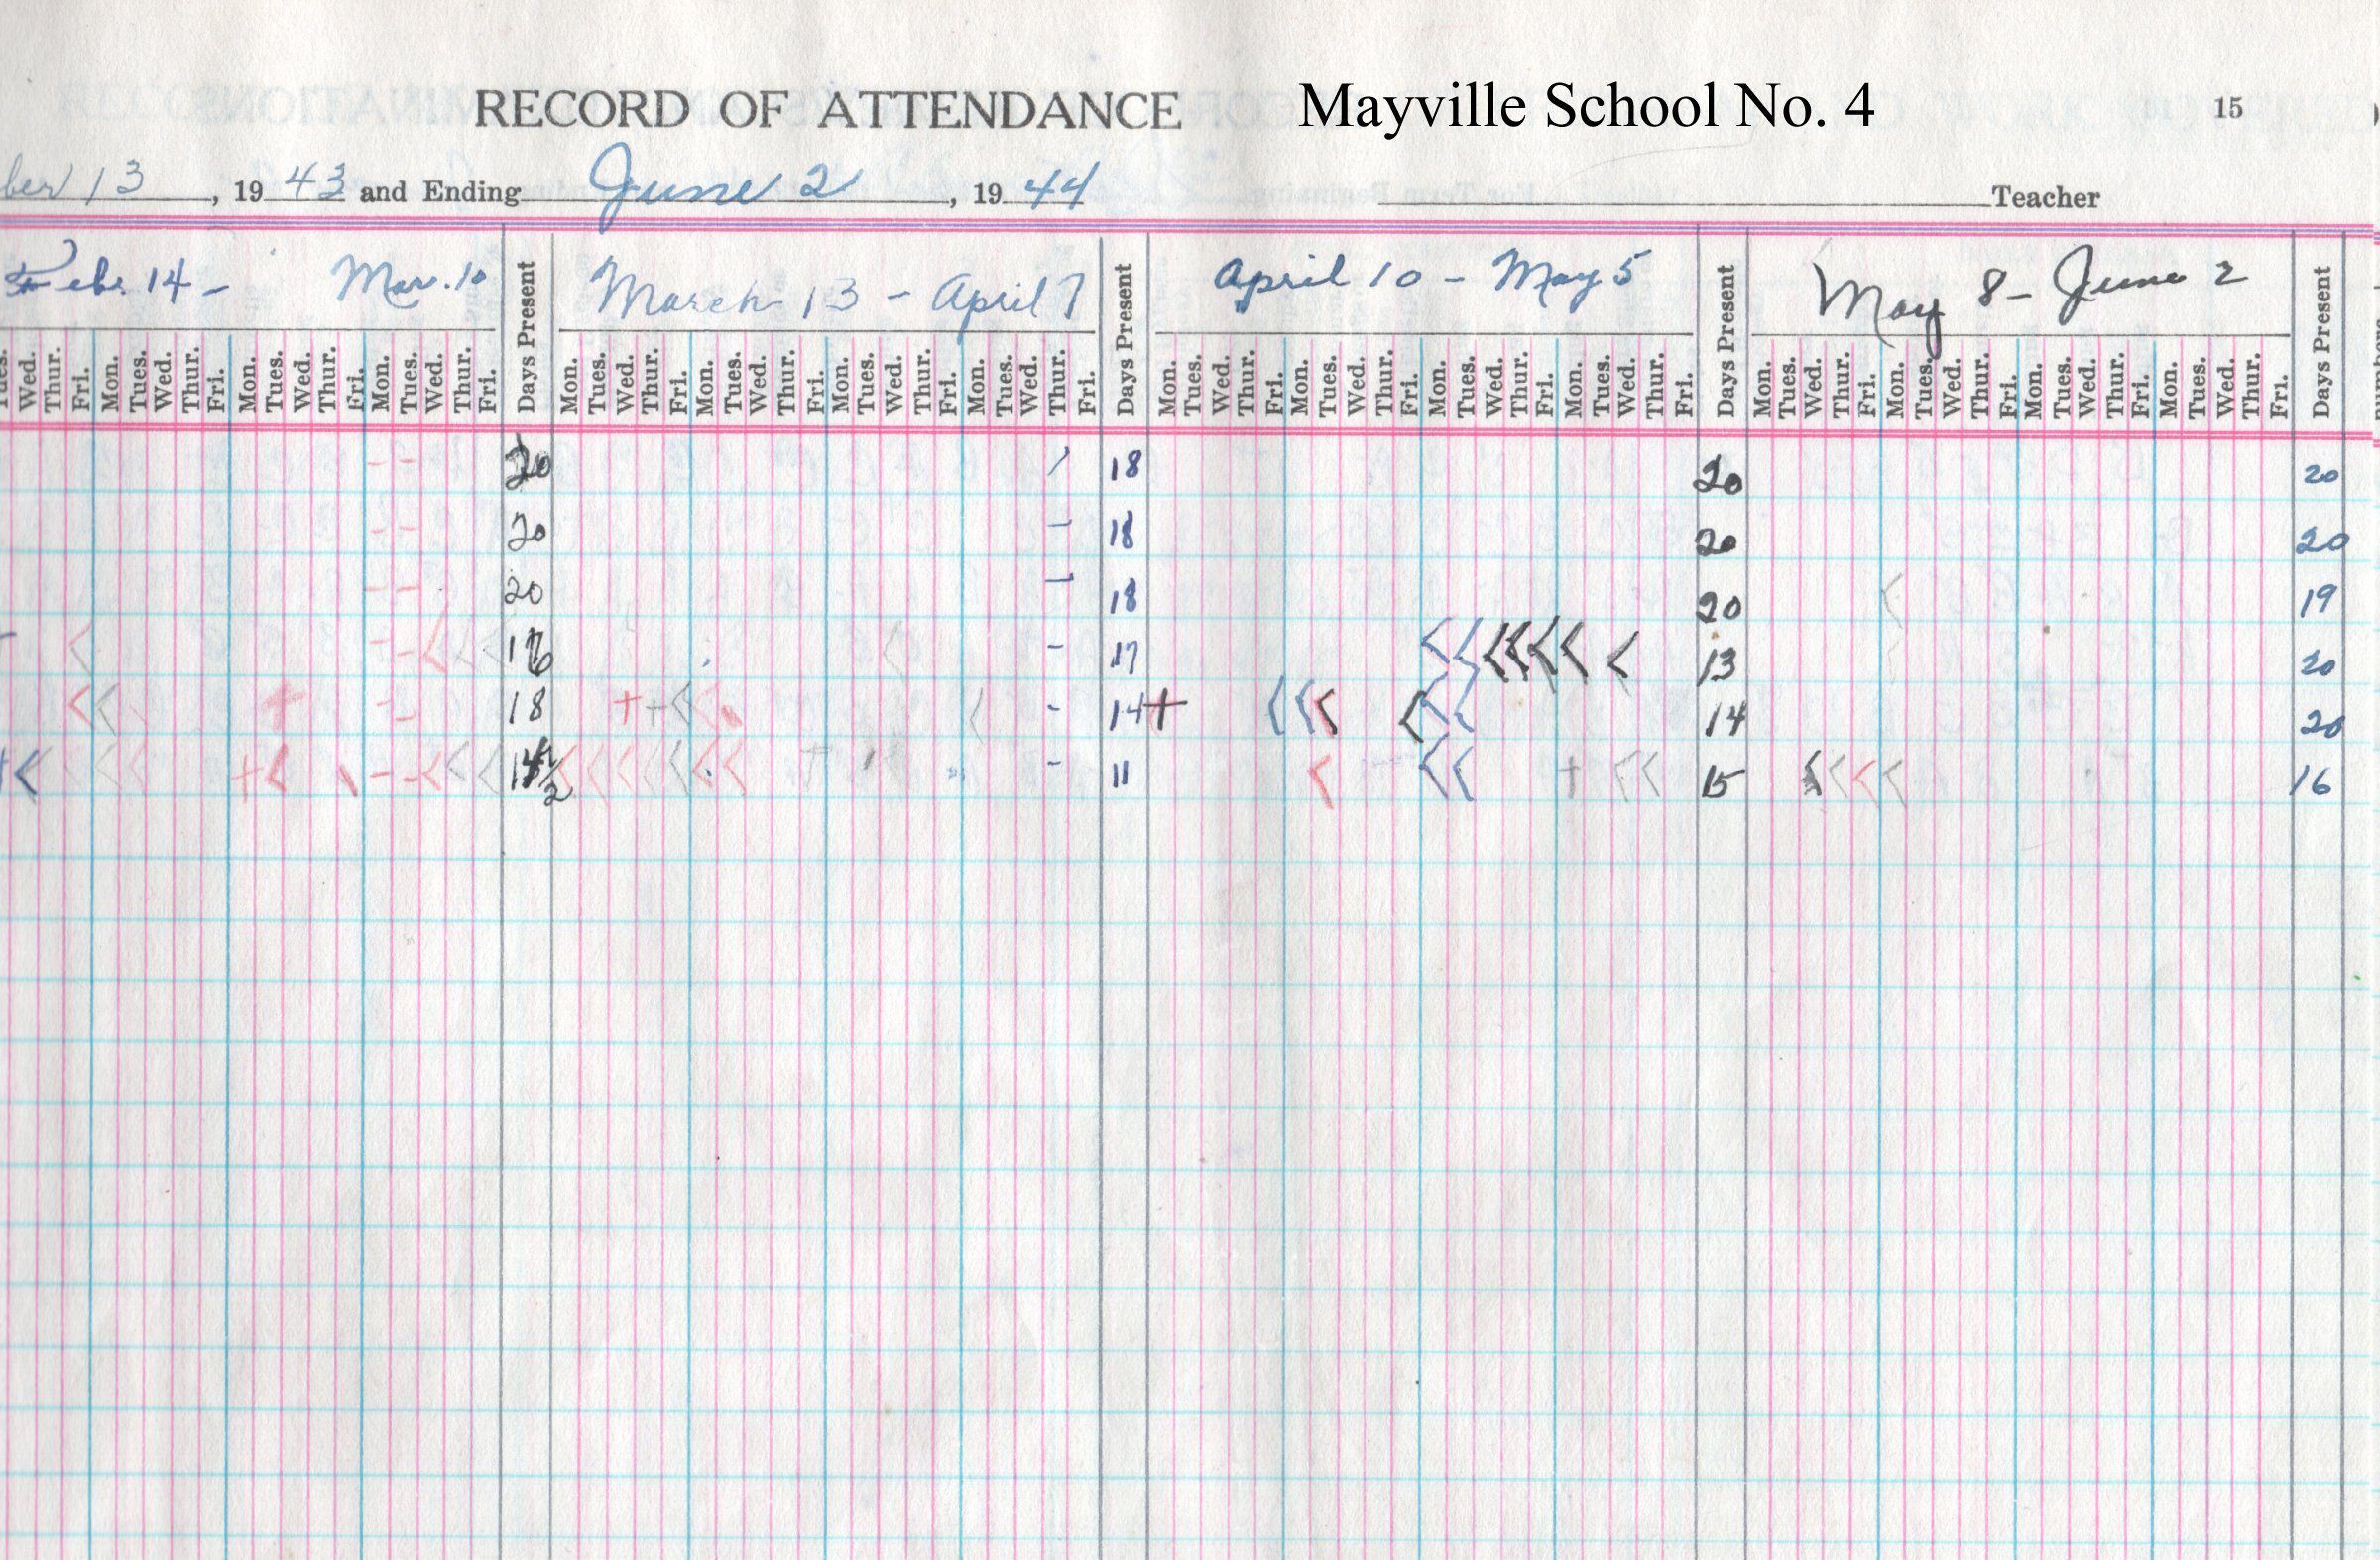 RECORD OF ATTENDANCE Mayville School No. 4 15
ber 13, 1943 and Ending June 2, 1944 Teacher
Feb. 14 - Mar. 10 Days Present March 13 - April 7 Days Present April 10 - May 5 Days Present May 8 - June 2 Days Present
Tues. Wed. Thur. Fri. Mon. Tues. Wed. Thur. Fri. Mon. Tues. Wed. Thur. Fri. Mon. Tues. Wed. Thur. Fri. Mon. Tues. Wed. Thur. Fri. Mon. Tues. Wed. Thur. Fri. Mon. Tues. Wed. Thur. Fri. Mon. Tues. Wed. Thur. Fri. Mon. Tues. Wed. Thur. Fri. Mon. Tues. Wed. Thur. Fri. Mon. Tues. Wed. Thur. Fri. Mon. Tues. Wed. Thur. Fri. Mon. Tues. Wed. Thur. Fri. Mon. Tues. Wed. Thur. Fri. Mon. Tues. Wed. Thur. Fri. Mon. Tues. Wed. Thur. Fri.
20 18 20 20
20 18 20 20
20 18 20 19
16 17 13 20
18 14 14 20
11 15 16